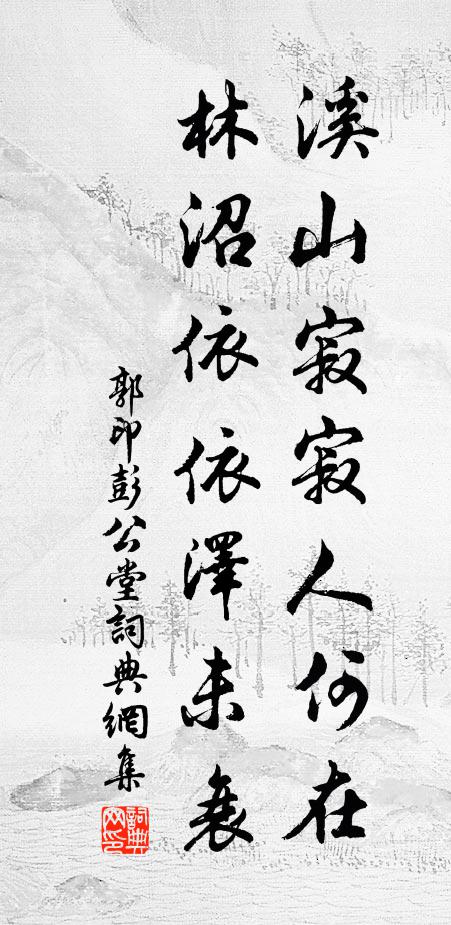 溪山寂寂人何在
林沼依依澤未衰
郭印彭公堂詞典網集
詞典网印